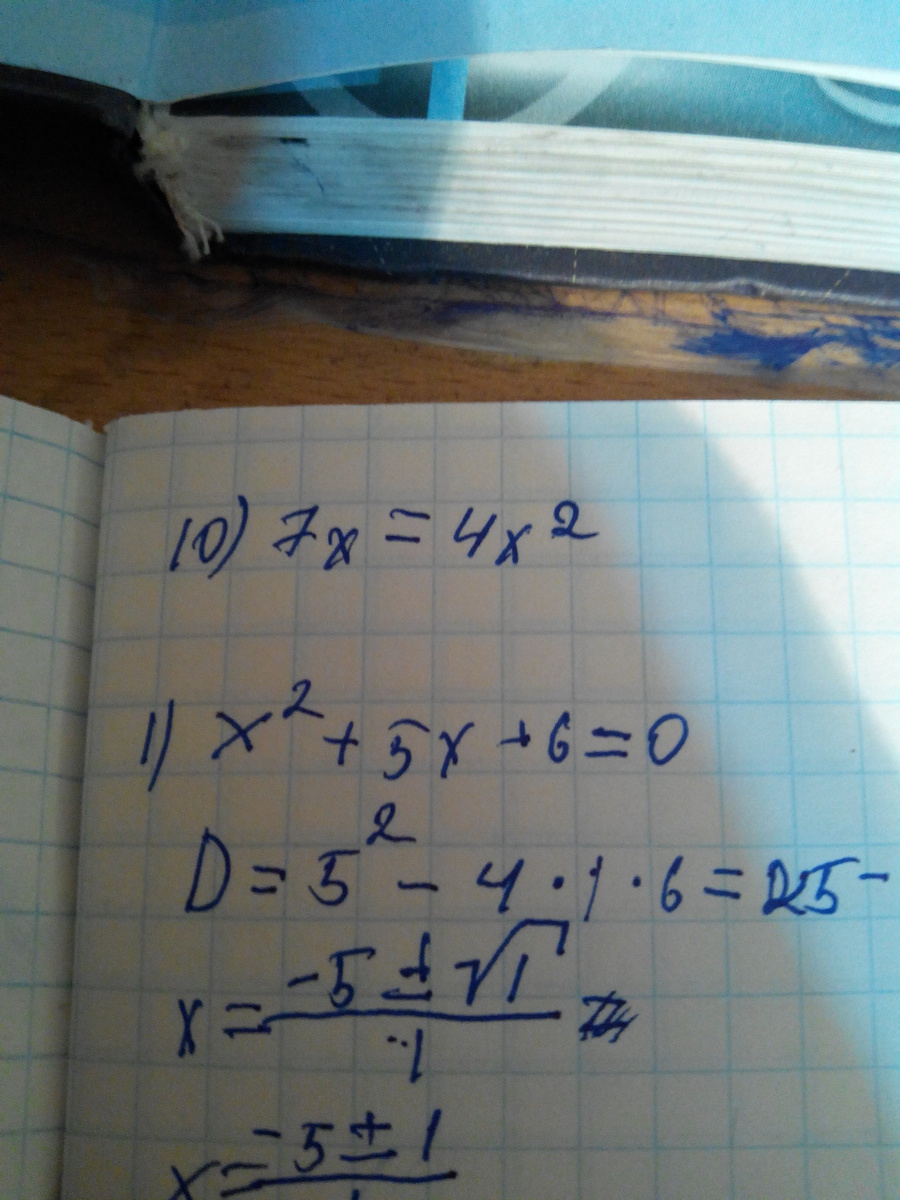 10) 7x = 4x²
1) x² + 5x + 6 = 0
D = 5² - 4 · 1 · 6 = 25 -
x = (-5 ± √1) / 1
x = (-5 ± 1) /